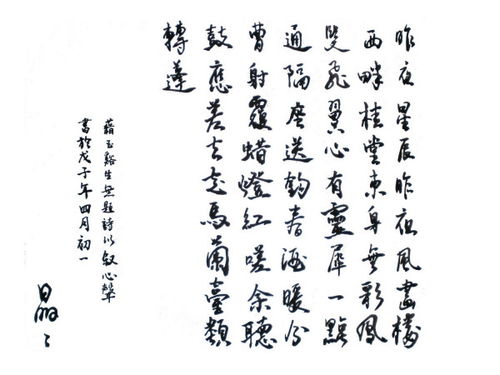 昨夜星辰昨夜風畫樓
西畔桂堂東身無彩鳳
雙飛翼心有靈犀一點
通隔座送鉤春酒暖分
曹射覆蜡燈紅嗟余聽
鼓應差去走馬蘭臺類
轉蓬
藉玉谿生無題詩以敘心聲
書於戊子年四月初一